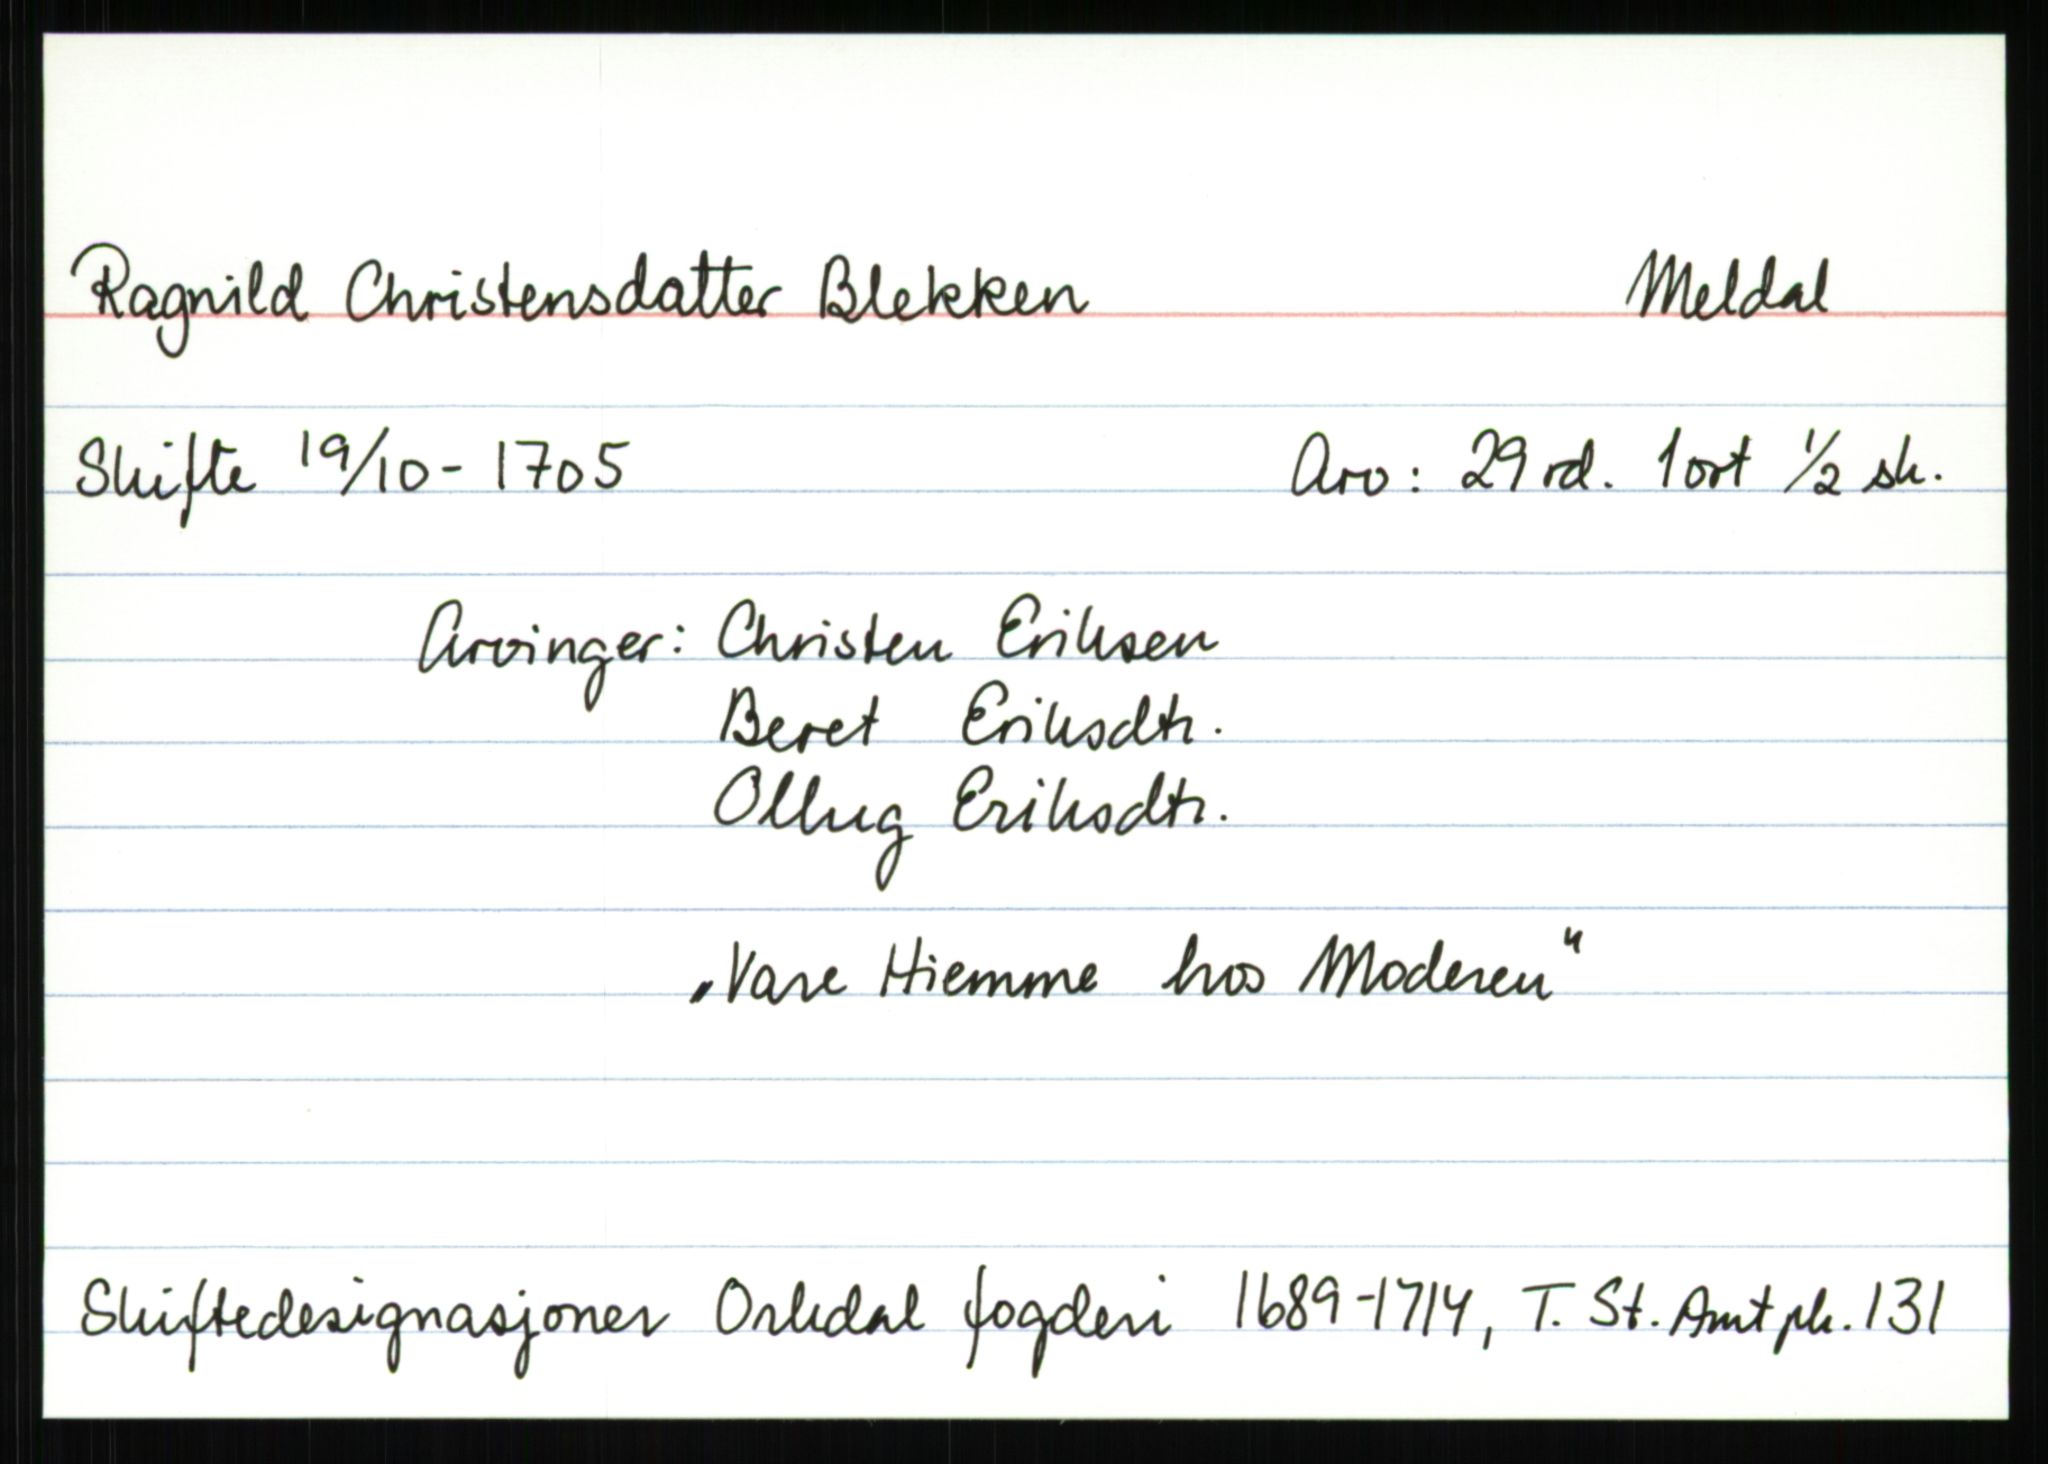 Ragnild Christensdatter Blekken Meldal
Skifte 19/10-1705 Arv: 29 rd. 1 ort 1/2 sk.
Arvinger: Christen Eriksen
Beret Eriksdtr.
Ollug Eriksdtr.
„Vare Hiemme hos Moderen“
Skiftedesignasjoner Orkdal fogderi 1689-1714, T. St. Amt pk. 131